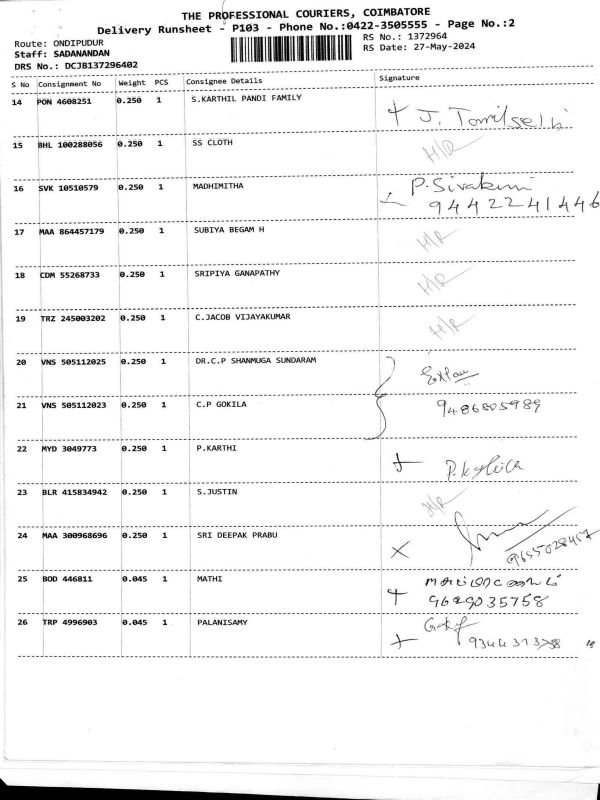 THE PROFESSIONAL COURIERS, COIMBATORE
Delivery Runsheet - P103 - Phone No.:0422-3505555 - Page No.:2
Route: ONDIPUDUR
RS No.: 1372964
Staff: SADANANDAN
RS Date: 27-May-2024
DRS No.: DCJB137296402
S No Consignment No Weight PCS Consignee Details Signature
14 PON 4608251 0.250 1 S.KARTHIL PANDI FAMILY J. Tamilselvi
15 BHL 100288056 0.250 1 SS CLOTH H/R
16 SVK 10510579 0.250 1 MADHIMITHA P. Sivakumi
9442241446
17 MAA 864457179 0.250 1 SUBIYA BEGAM H H/R
18 CDM 55268733 0.250 1 SRIPIYA GANAPATHY H/R
19 TRZ 245003202 0.250 1 C.JACOB VIJAYAKUMAR H/R
20 VNS 505112025 0.250 1 DR.C.P SHANMUGA SUNDARAM
21 VNS 505112023 0.250 1 C.P GOKILA 9486805989
22 MYD 3049773 0.250 1 P.KARTHI
23 BLR 415834942 0.250 1 S.JUSTIN H/R
24 MAA 300968696 0.250 1 SRI DEEPAK PRABU 9655028457
25 BOD 446811 0.045 1 MATHI
9629035758
26 TRP 4996903 0.045 1 PALANISAMY